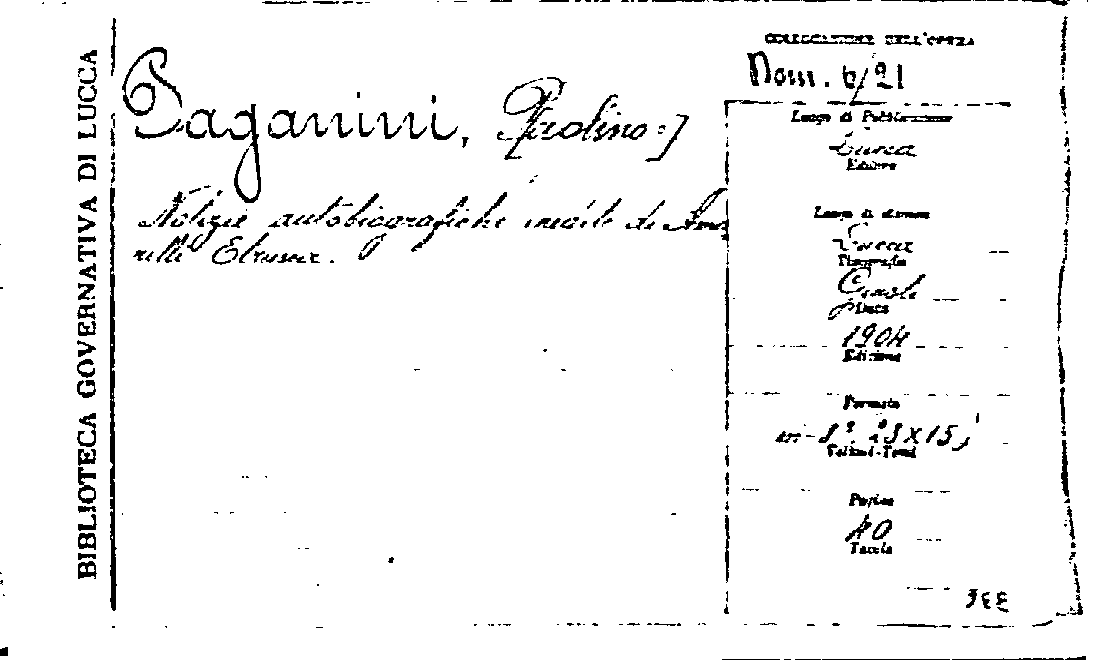 BIBLIOTECA GOVERNATIVA DI LUCCA
Paganini, Paolino:]
Notizie autobiografiche inedite di Ama
rilli Etrusca.
COLLOCAZIONE DELL'OPERA
Nom. 6/21
Luogo di Pubblicazione
Lucca
Editore
Luogo di stampa
Lucca
Tipografia
Data
1904
Edizione
Formato
in-8º. 23×15
Volumi-Tomi
Pagine
40
Tavole